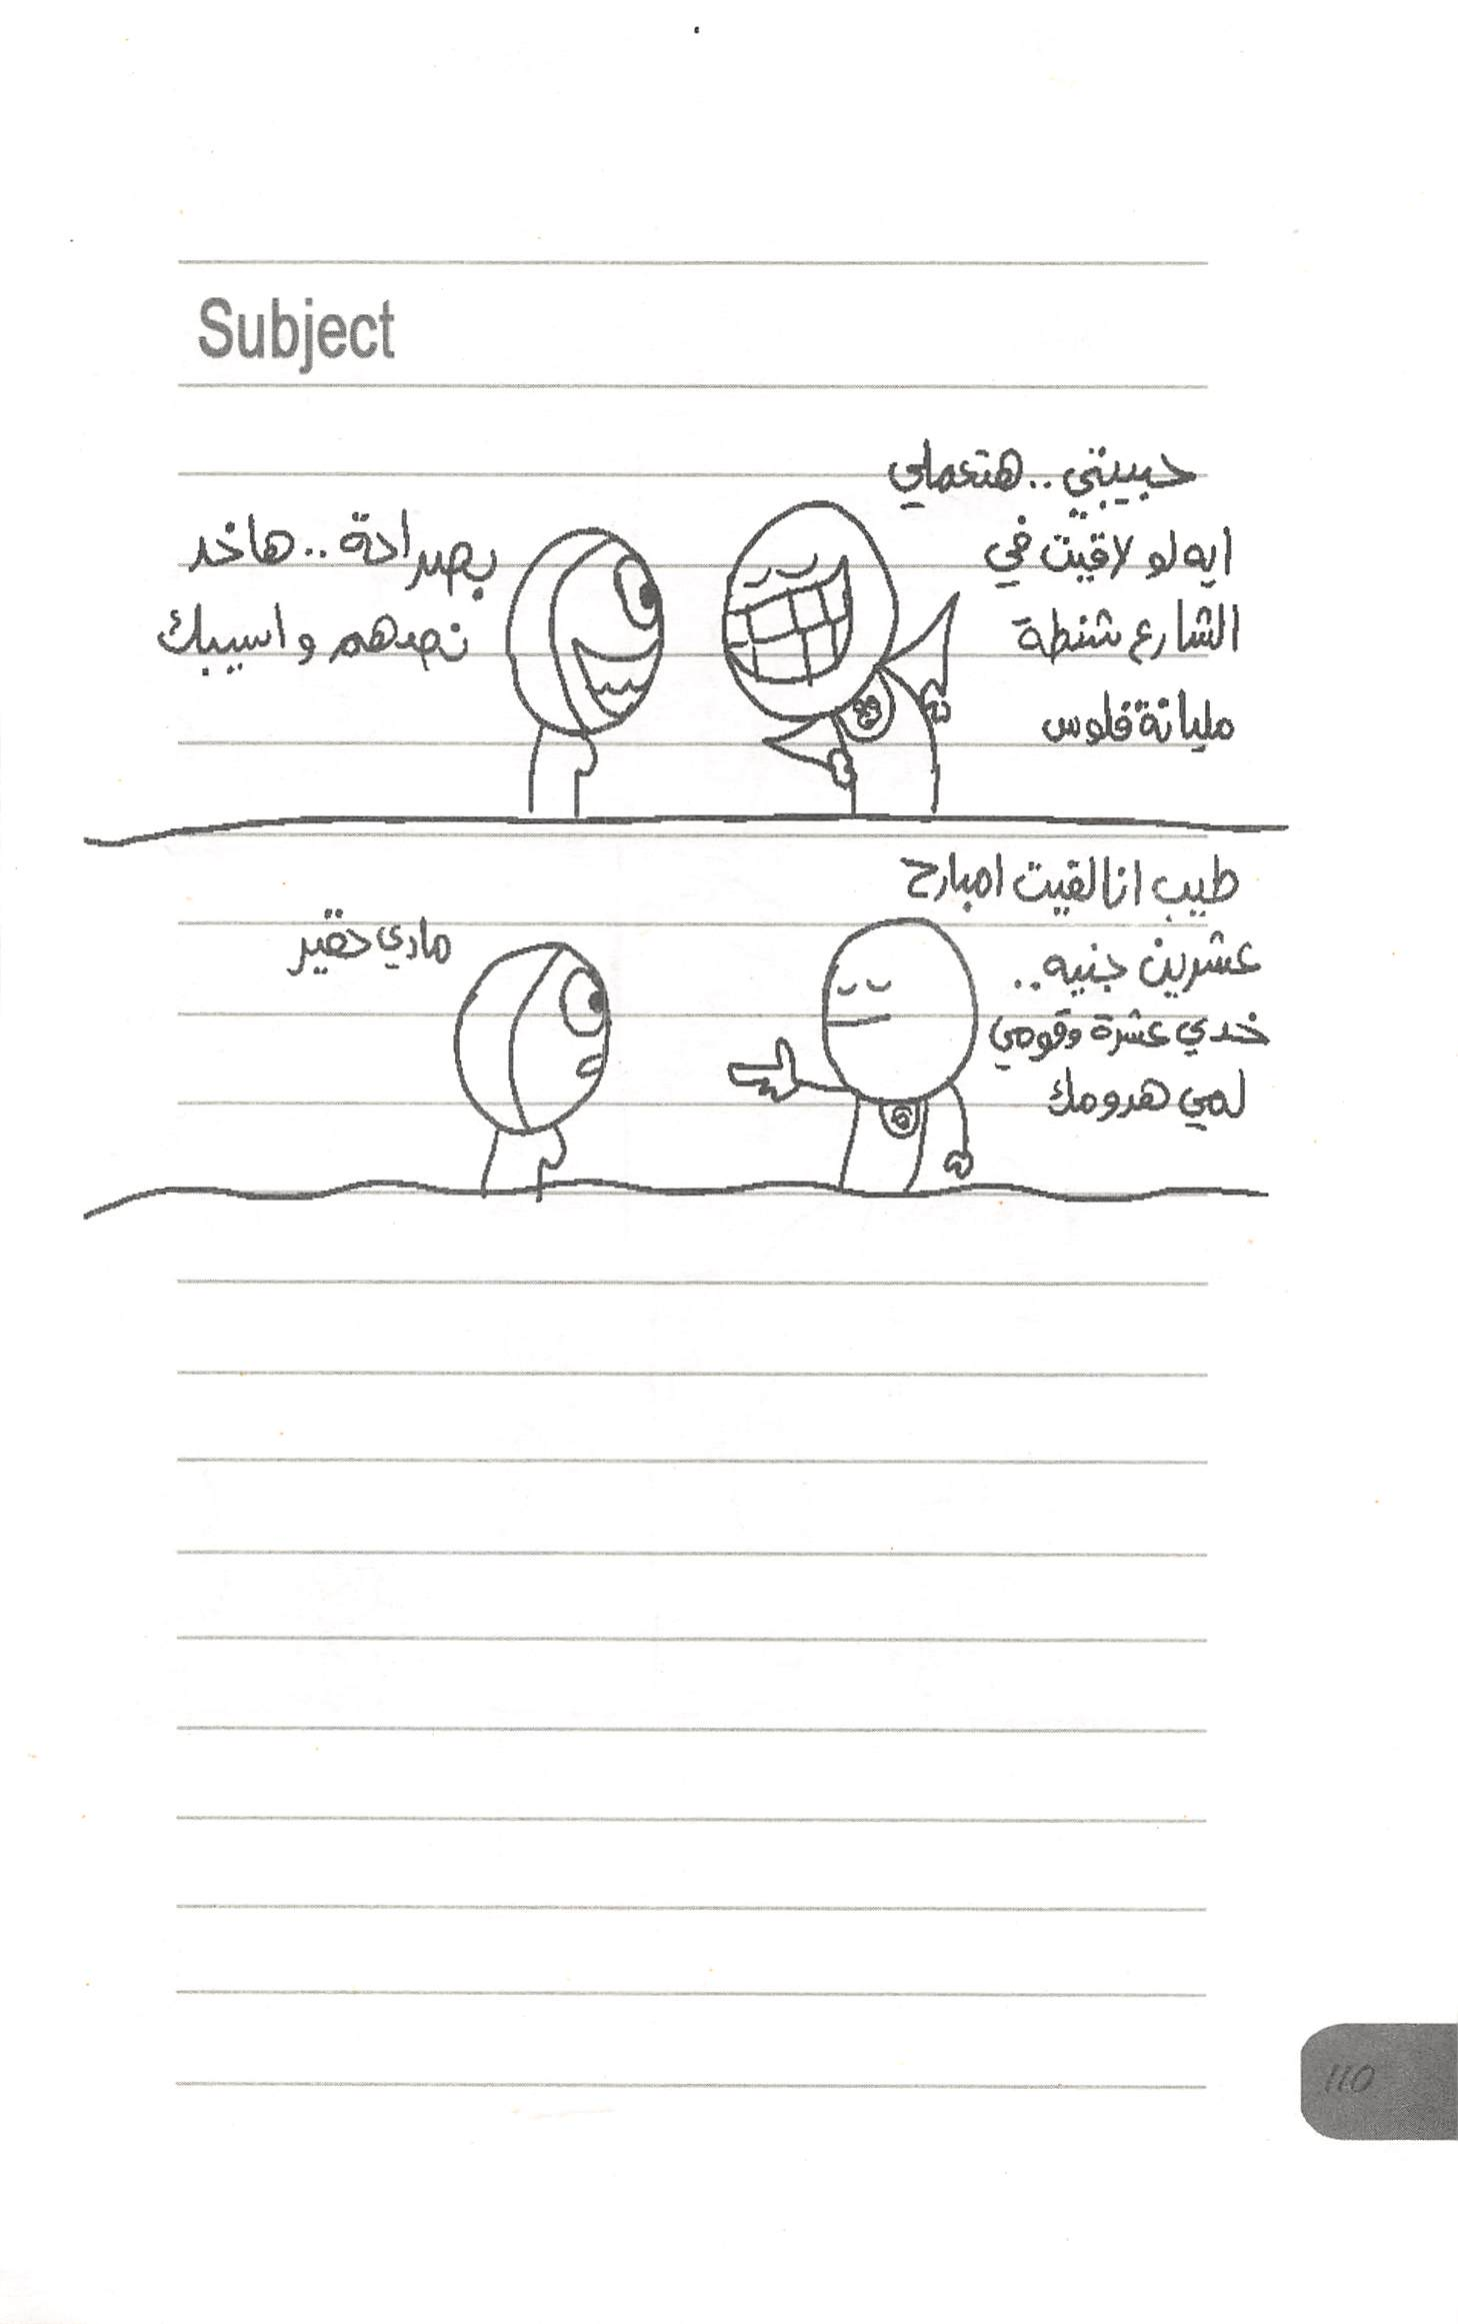 Subject
حبيبتي..هتعملي
ايه لو لاقيت في
الشارع شنطة
مليانة فلوس
بصراحة..هاخد
نصهم واسيبك
طيب انا لقيت امبارح
عشرين جنيه..
خدي عشرة وقومي
لمي هدومك
مادي حقير
110